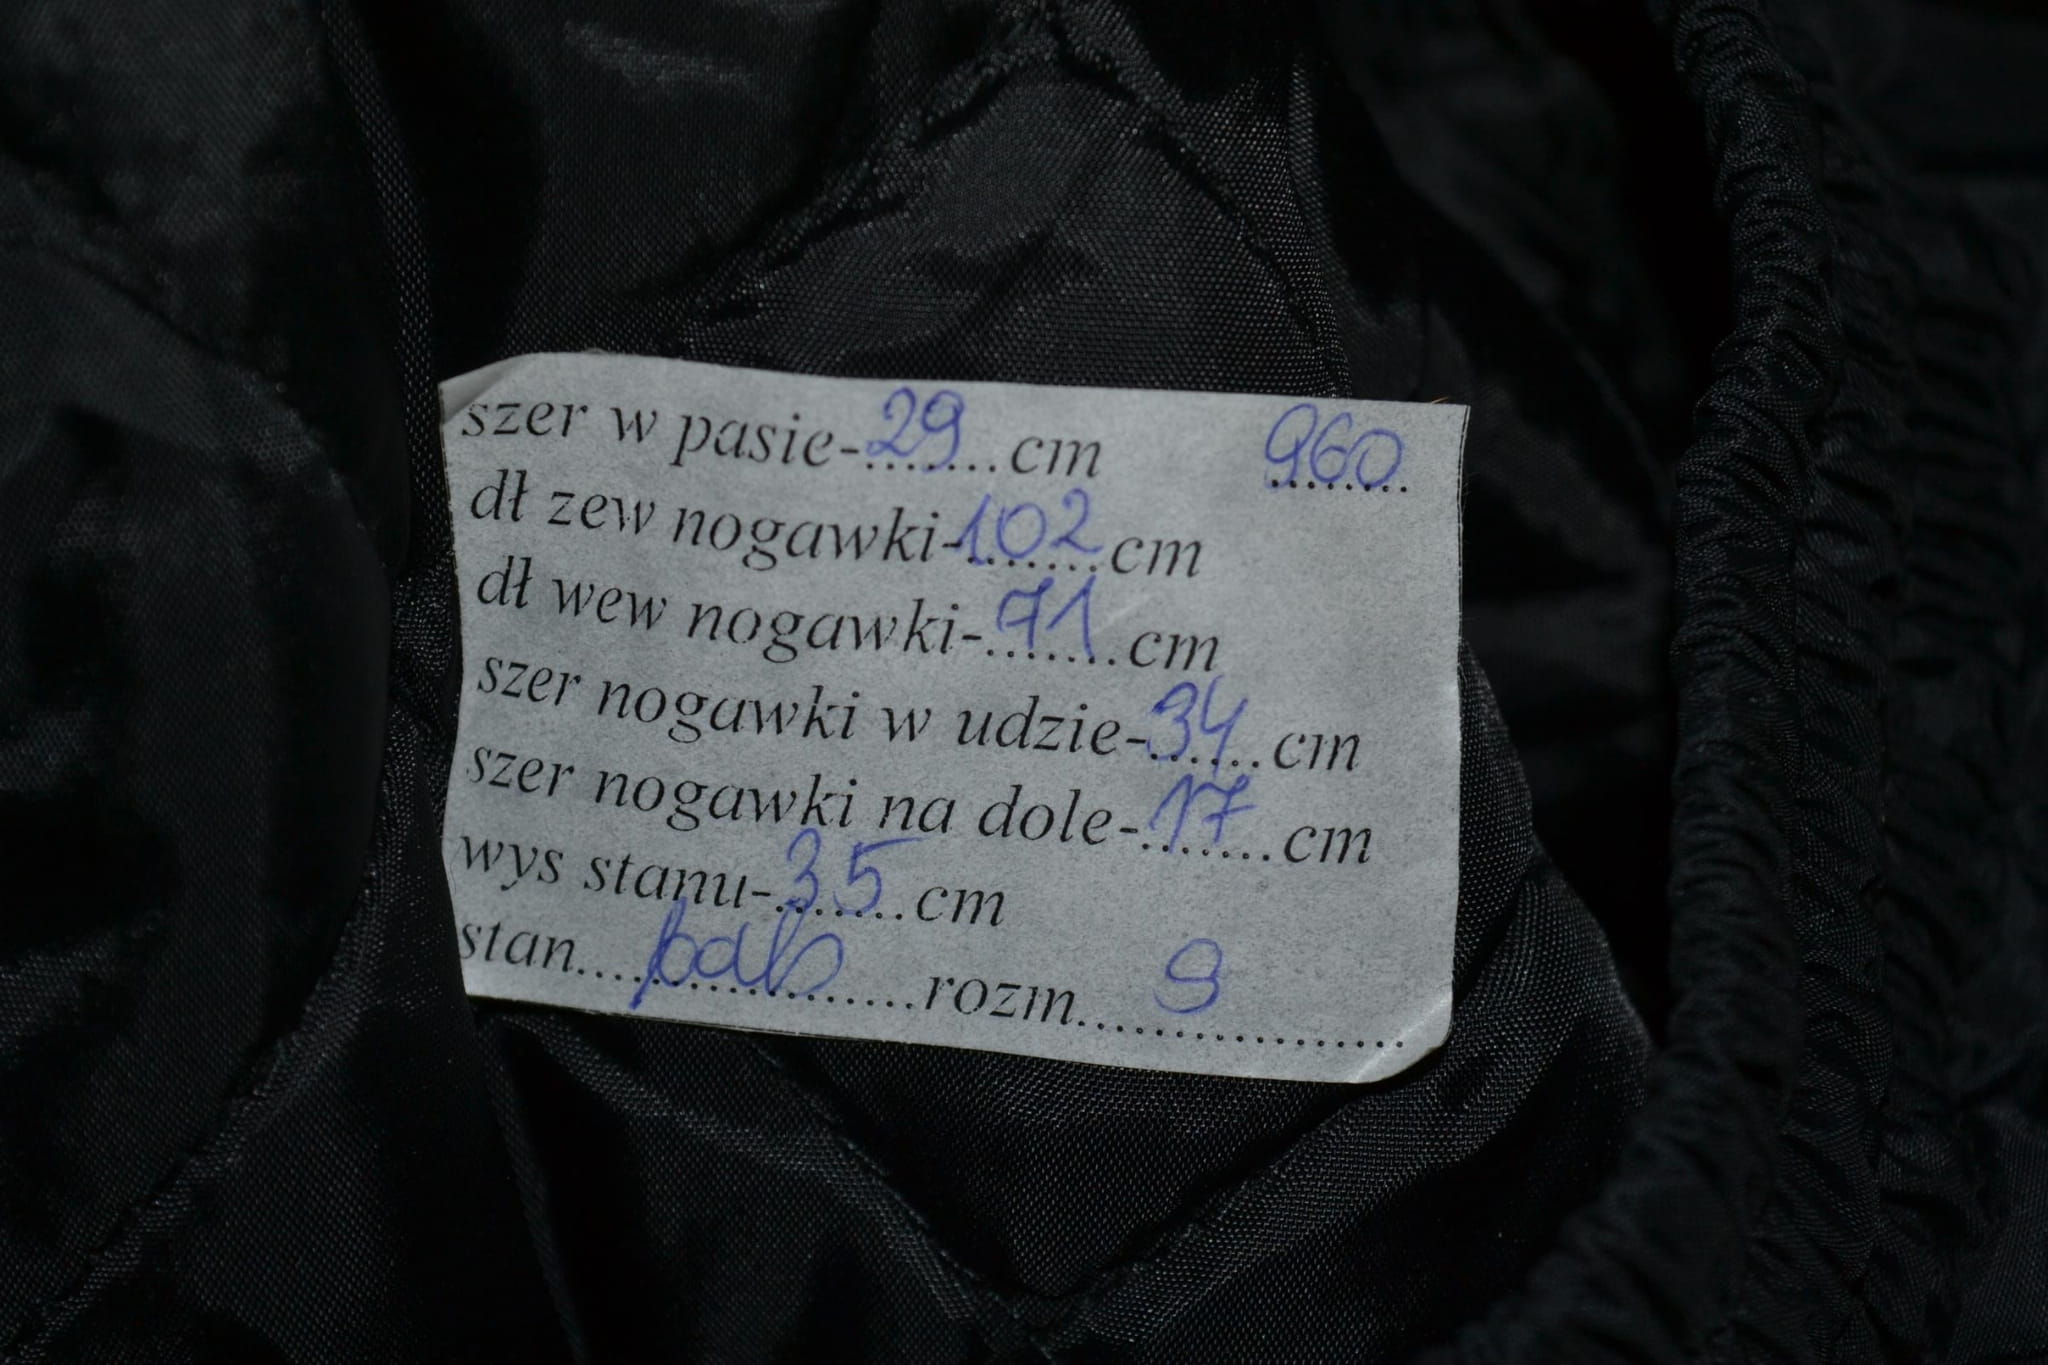 szer w pasie-29.......cm 960
dł zew nogawki-102.......cm
dł wew nogawki-71.......cm
szer nogawki w udzie-34.......cm
szer nogawki na dole-17.......cm
wys stanu-35.......cm
stan....................rozm.....................